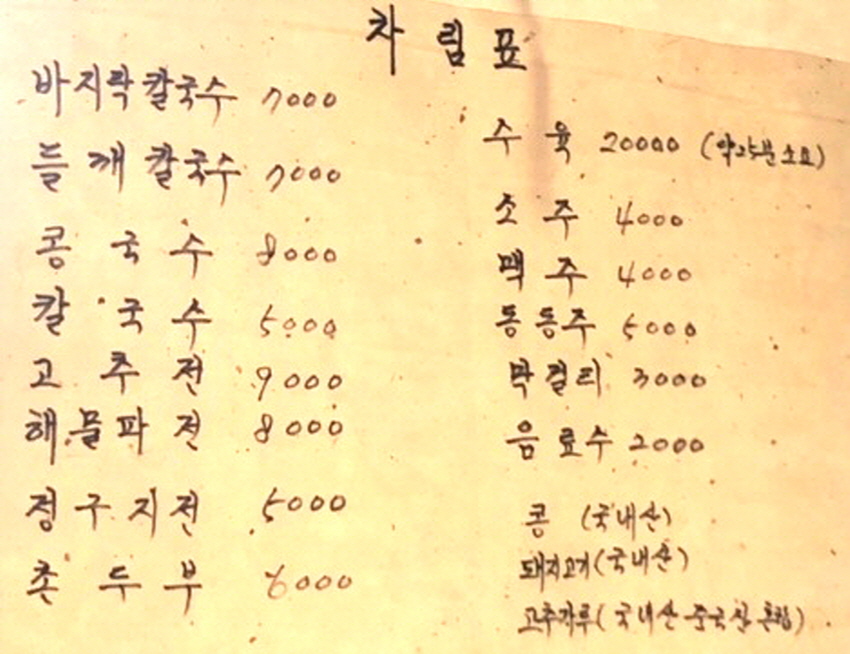 차림표
바지락칼국수 7000
들깨칼국수 7000
콩국수 8000
칼국수 5000
고추전 9000
해물파전 8000
정구지전 5000
촌두부 6000
수육 20000 (약25분소요)
소주 4000
맥주 4000
동동주 5000
막걸리 3000
음료수 2000
콩 (국내산)
돼지고기(국내산)
고추가루(국내산 중국산 혼합)